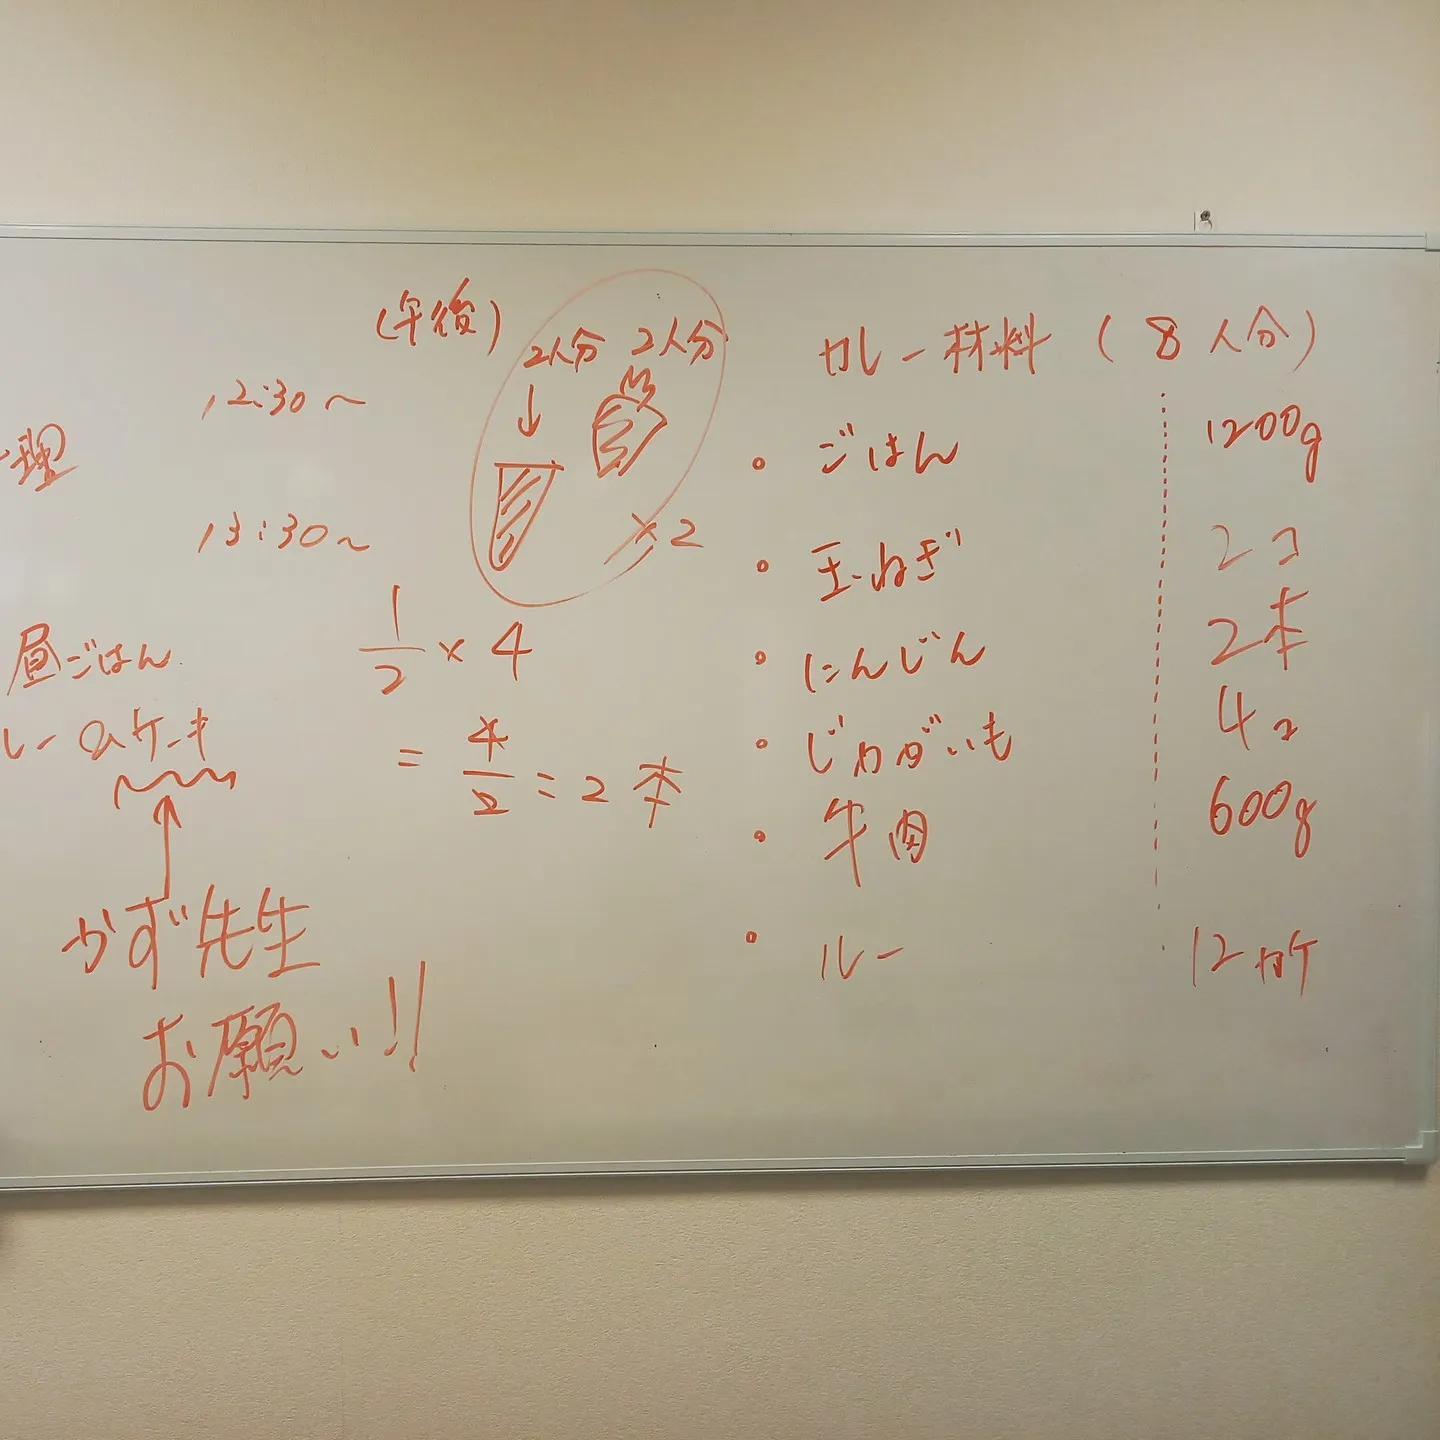 (午後)
12:30～
理
13:30～
昼ごはん
レー ケーキ
かず先生
お願い!!
2人分 2人分
×2
1/2 × 4
= 4/2 = 2本
カレー材料 (8人分)
• ごはん 1200g
• 玉ねぎ 2コ
• にんじん 2本
• じゃがいも 4コ
• 牛肉 600g
• ルー 12カケ